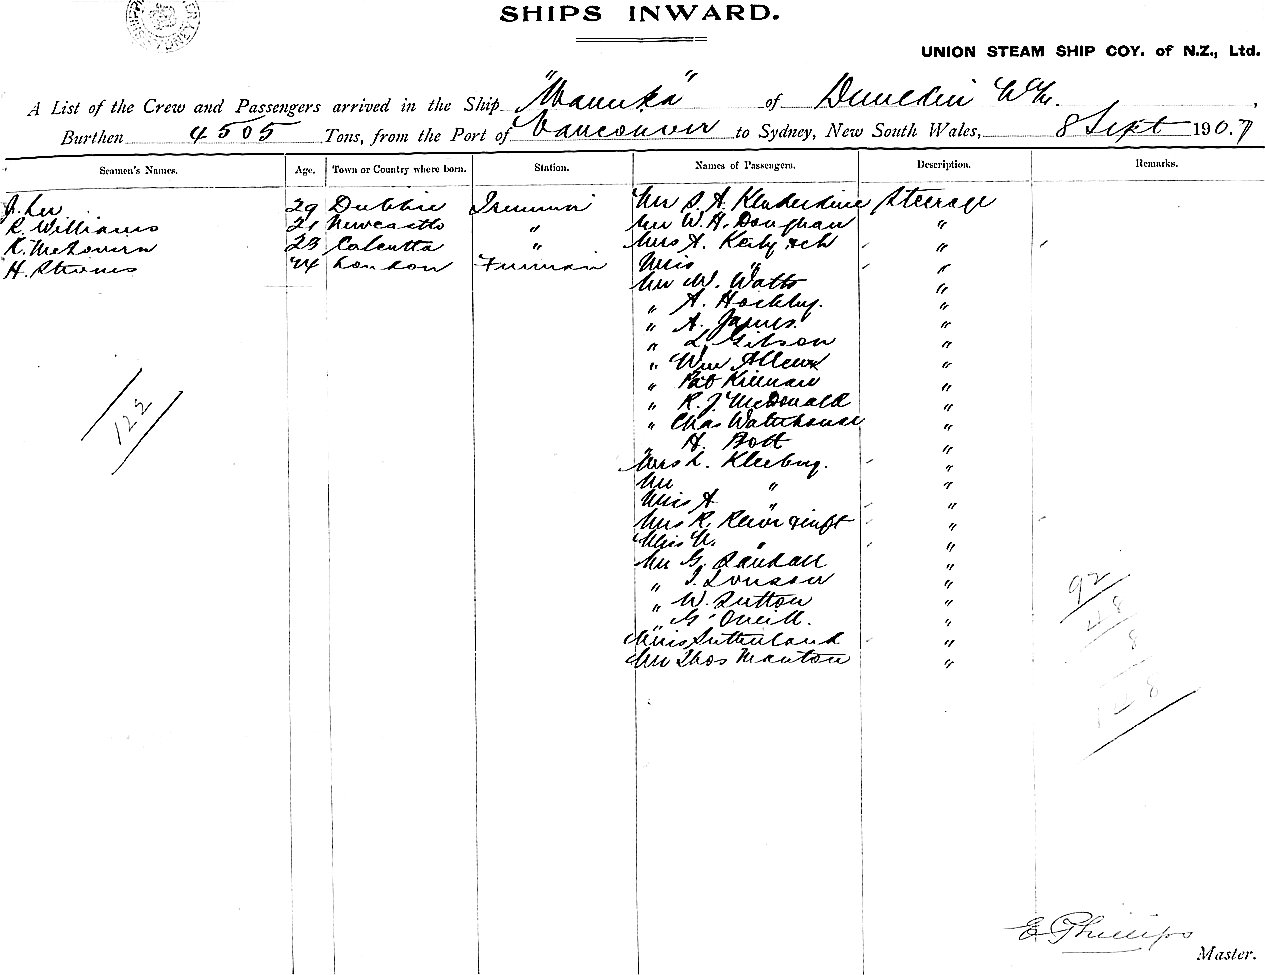 SHIPS INWARD.
UNION STEAM SHIP COY. of N.Z., Ltd.
A List of the Crew and Passengers arrived in the Ship "Manuka" of Dunedin
Burthen 4505 Tons, from the Port of Vancouver to Sydney, New South Wales, 8 Sept 1907
Seamen's Names. Age. Town or Country where born. Station. Names of Passengers. Description. Remarks.
J. Lee 29 Dublin Trimmer Mr S. A. Steerage
R. Williams 21 Newcastle " Mr W. H. "
K. McGovern 23 Calcutta " Mrs A. "
H. 24 London Fireman Miss " "
Mr W. Watts "
" A. "
" A. James. "
" L. Gibson "
" Wm "
" Pat "
" R. J. McDonald "
" Chas Waterhouse "
" H. Bott "
Mrs L. "
Mr " "
Miss A " "
Mrs R. "
Miss " "
Mr G. Randall "
" "
" W. Sutton "
" G. O'neill. "
Miss Sutherland "
Mr Thos Manton "
122
92
48
8
148
E Phillips
Master.